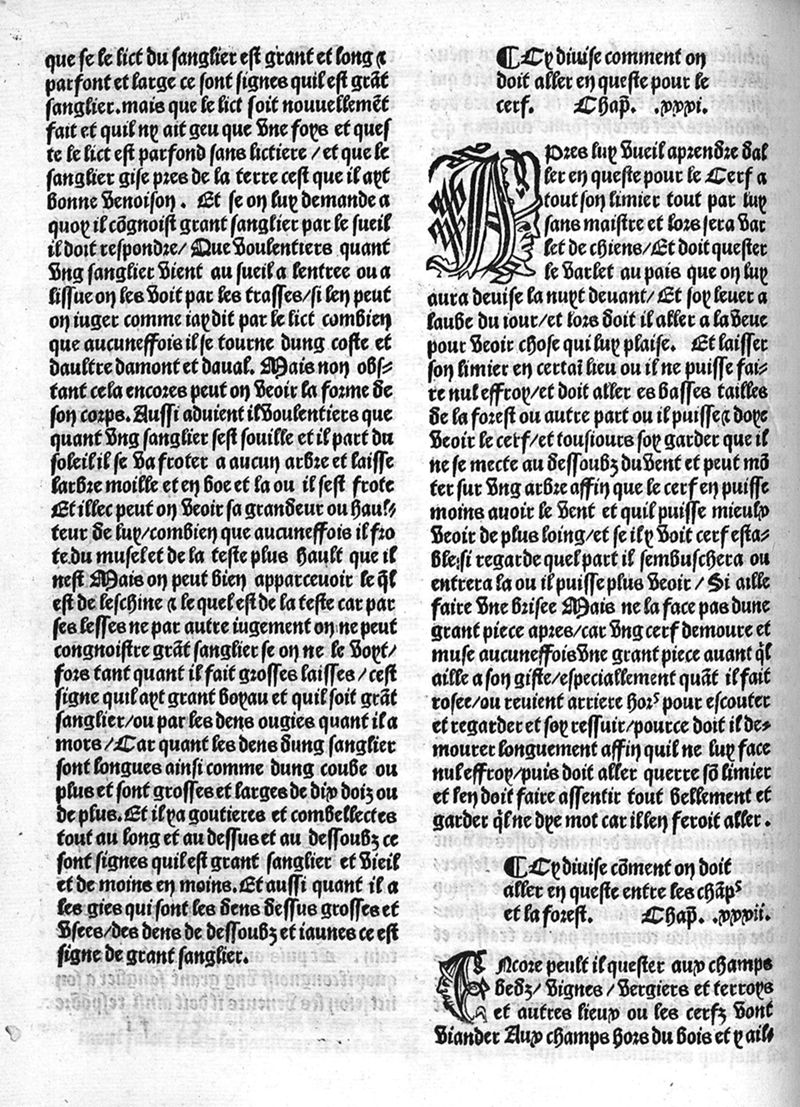 que se le lict du sanglier est grant et long ⁊
parfont et large ce sont signes quil est grãt
sanglier.mais que le lict soit nouuellemẽt
fait et quil ny ait geu que vne foys et ques
te le lict est parfond sans lictiere / et que le
sanglier gise pres de la terre cest que il ayt
bonne venoison . Et se on luy demande a
quoy il cõgnoist grant sanglier par le sueil
il doit respondre/ Que voulentiers quant
vng sanglier vient au sueil a lentree ou a
lissue on les voit par les trasses/si len peut
on iuger comme iay dit par le lict combien
que aucuneffois il se tourne dung coste et
daultre damont et daual. Mais non obs⸗
tant cela encores peut on veoir la forme de
son corps. Aussi aduient il voulentiers que
quant vng sanglier sest souille et il part du
soleil il se va froter a aucun arbre et laisse
larbre moille et en boe et la ou il sest frote
Et illec peut on veoir sa grandeur ou haul⸗
teur de luy/combien que aucuneffois il fro
te.du musel et de la teste plus hault que il
nest Mais on peut bien apparceuoir le q̃l
est de leschine ⁊ le quel est de la teste car par
ses lesses ne par autre iugement on ne peut
congnoistre grãt sanglier se on ne le voyt/
fors tant quant il fait grosses laisses / cest
signe quil ayt grant boyau et quil soit grãt
sanglier/ou par les dens ougies quant il a
mors /Car quant les dens dung sanglier
sont longues ainsi comme dung coube ou
plus et sont grosses et larges de dix doiz ou
de plus. Et il ya goutieres et combellectes
tout au long et au dessus et au dessoubz ce
sont signes quil est grant sanglier et vieil
et de moins en moins. Et aussi quant il a
les gies qui sont les dens dessus grosses et
vsees/des dens de dessoubz et iaunes ce est
signe de grant sanglier.
¶ Cy diuise comment on
doit aller en queste pour le
cerf. Chap̃. .xxxi.
APres luy vueil aprendre dal
ler en queste pour le Cerf a
tout son limier tout par luy
sans maistre et lors sera var
let de chiens/Et doit quester
le varlet au pais que on luy
aura deuise la nuyt deuant/ Et soy leuer a
laube du iour/et lors doit il aller a la veue
pour veoir chose qui luy plaise. Et laisser
son limier en certaĩ lieu ou il ne puisse fai⸗
re nul effroy/et doit aller es basses tailles
de la forest ou autre part ou il puisse ⁊ doye
veoir le cerf/et tousiours soy garder que il
ne se mecte au dessoubz du vent et peut mõ
ter sur vng arbre affin que le cerf en puisse
moins auoir le vent et quil puisse mieulx
veoir de plus loing/et se il y voit cerf esta⸗
ble:si regarde quel part il sembuschera ou
entrera la ou il puisse plus veoir / Si aille
faire vne brisee Mais ne la face pas dune
grant piece apres/car vng cerf demoure et
muse aucuneffois vne grant piece auant q̃l
aille a son giste/especiallement quãt il fait
rosee/ou reuient arriere horˢ pour escouter
et regarder et soy ressuir/pource doit il de⸗
mourer longuement affin quil ne luy face
nul effroy/puis doit aller querre sõ limier
et len doit faire assentir tout bellement et
garder q̃l ne dye mot car il len feroit aller .
¶ Cy diuise cõment on doit
aller en queste entre les chãpˢ
et la forest. Chap̃. .xxxii.
ENcore peult il quester aux champs
bedz/ vignes/ vergiers et terroys
et autres lieux ou les cerfz vont
viander Aux champs hors du bois et y ail⸗